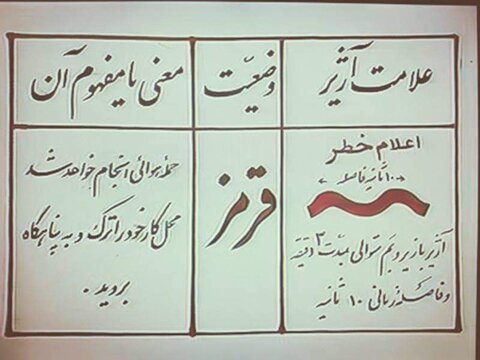 علامت آژیر
وضعیت
معنی یا مفهوم آن
اعلام خطر
۱۰ ثانیه فاصله
آژیر با زیر و بم متوالی بمدت ۳ دقیقه
و فاصلهٔ زمانی ۱۰ ثانیه
قرمز
حمله هوائی انجام خواهد شد
محل کار خود را ترک و به پناهگاه
بروید.